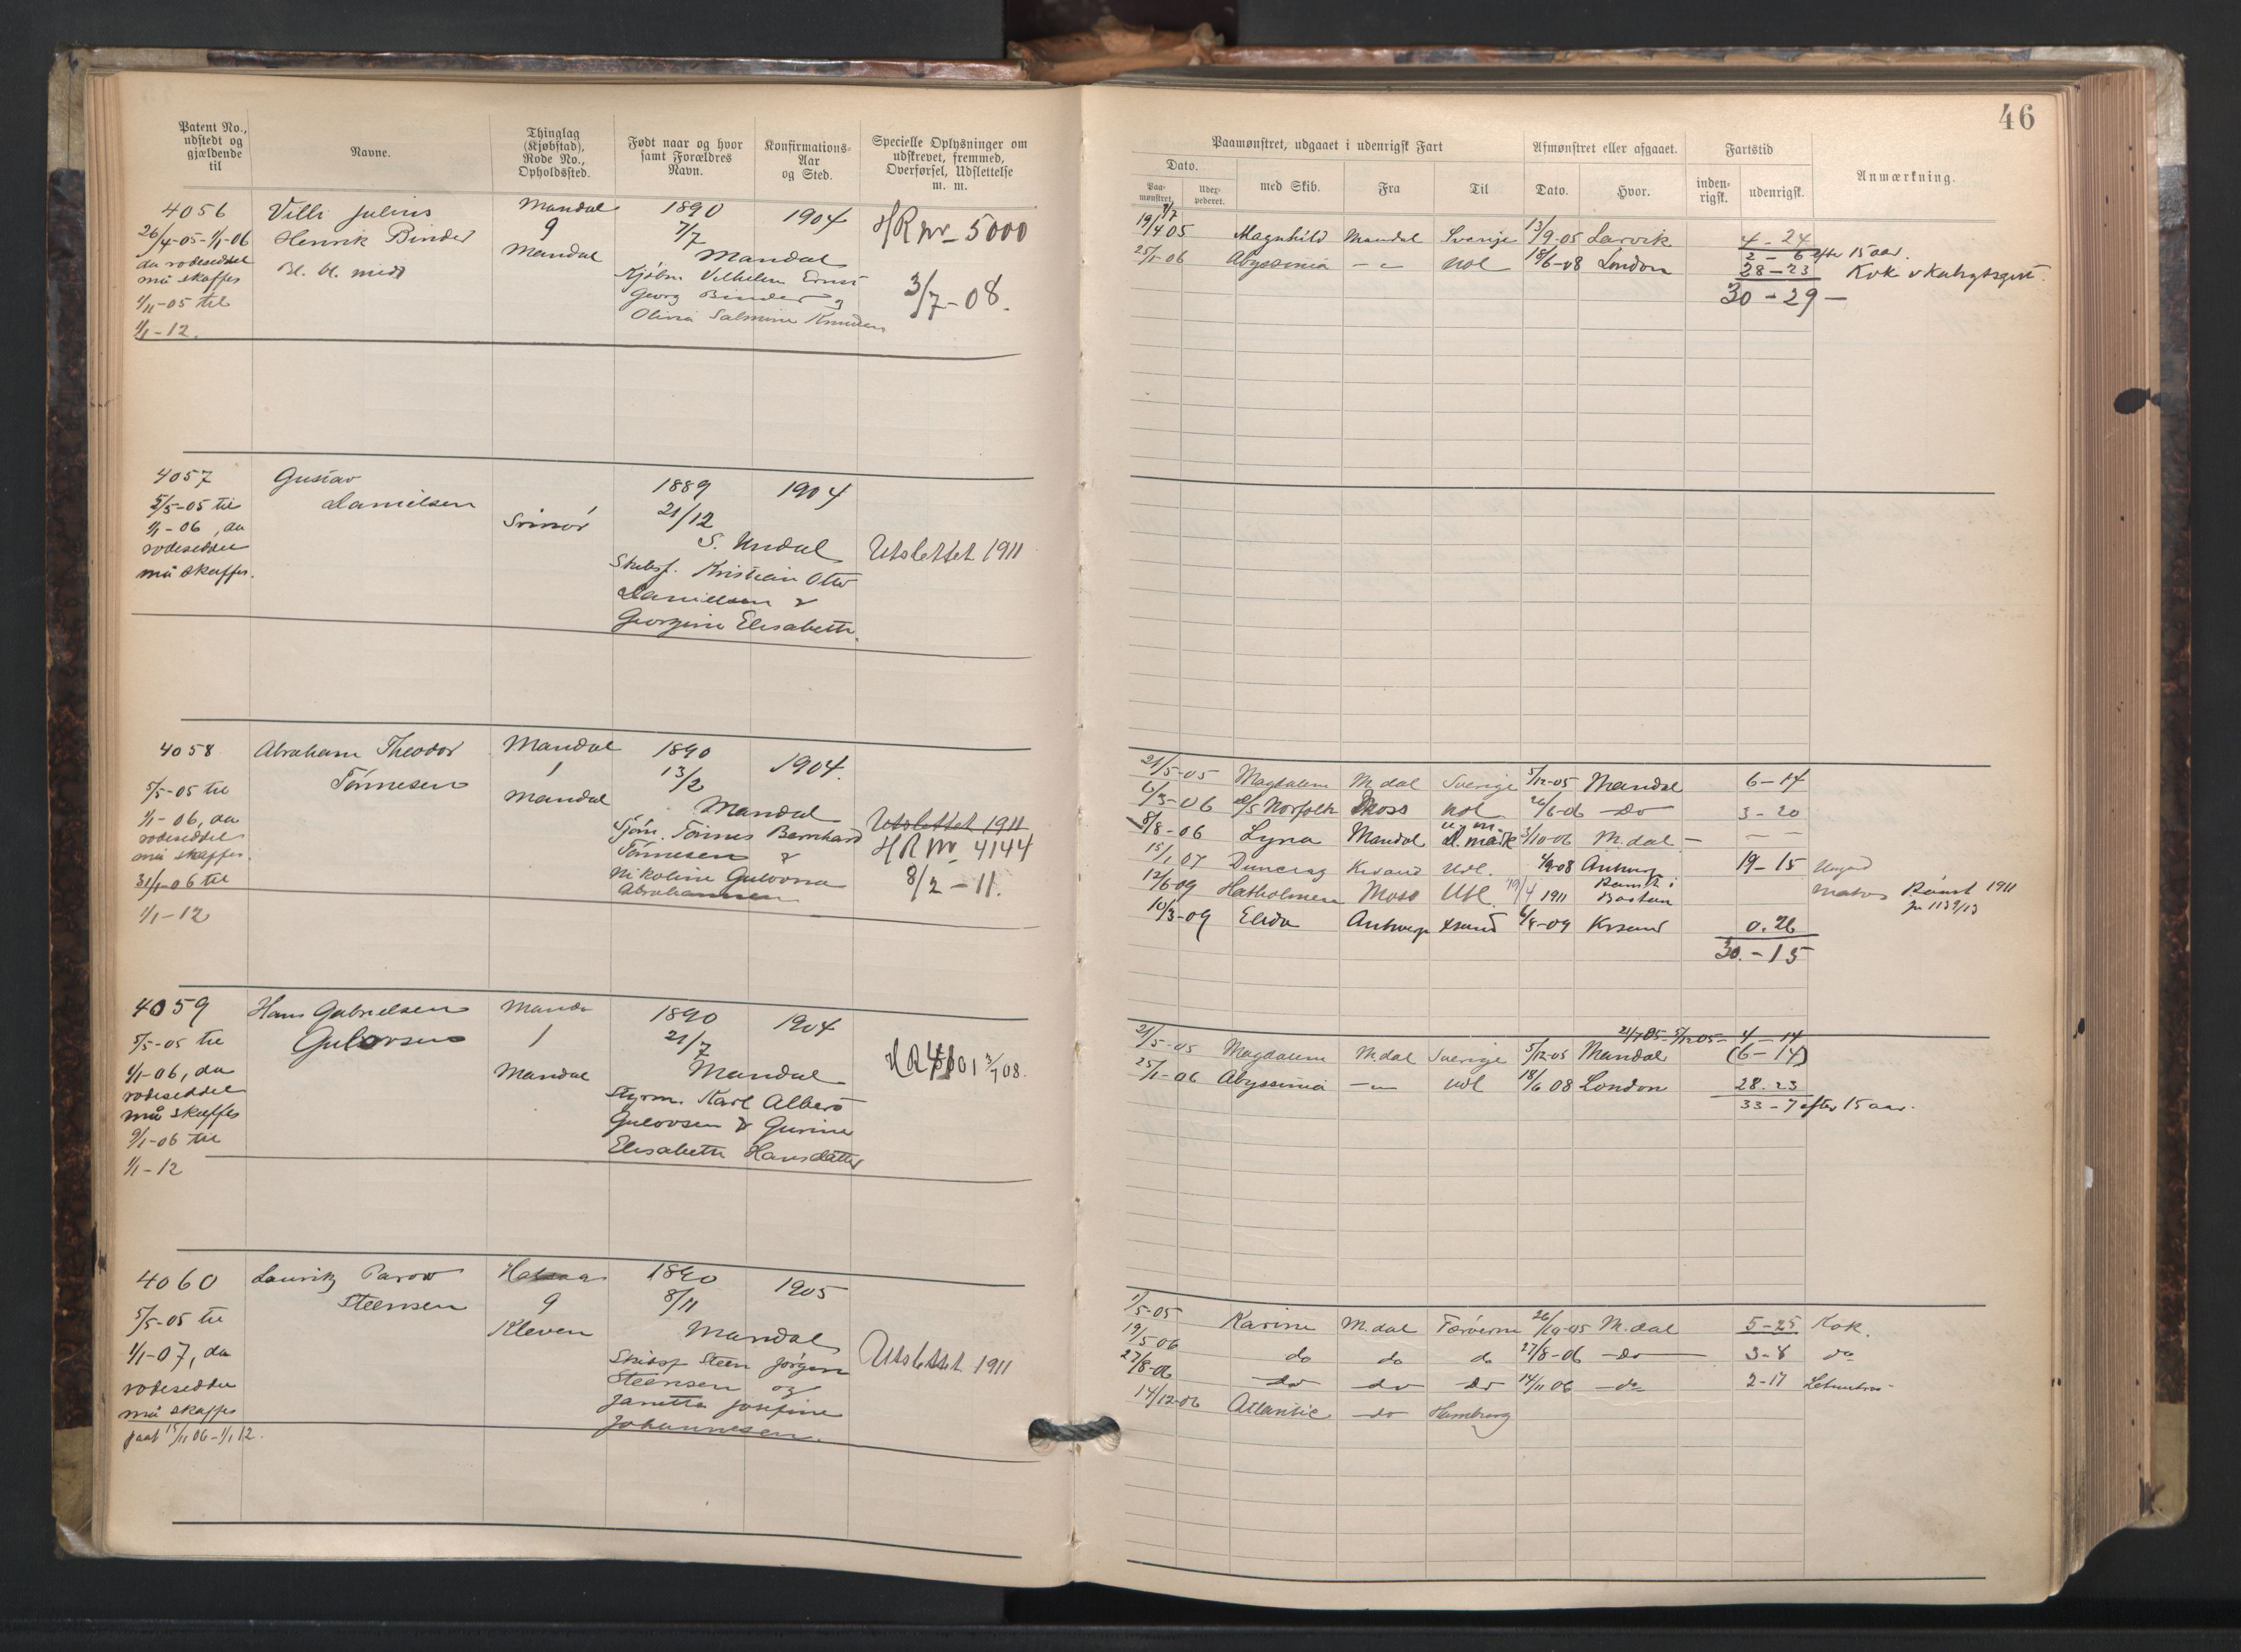 46
Patent No., udstedt og gjældende til
Navne.
Thinglag (Kjøbstad), Rode No., Opholdssted.
Født naar og hvor samt Forældres Navn.
Konfirmations-Aar og Sted.
Specielle Oplysninger om udskrevet, fremmed, Overførsel, Udslettelse m. m.
Paamønstret, udgaaet i udenrigsk Fart
Afmønstret eller afgaaet.
Fartstid
Anmærkning.
Dato.
med Skib.
Fra
Til
Dato.
Hvor.
inden-rigsk.
udenrigsk.
Paa-mønstret
4056
26/4-05-1/1-06
da rodeseddel
må skaffes
1/11-05 til
1/1-12.
Villi Julius
Henrik Binder
Bl. bl. midd
Mandal
9
Mandal
1890
7/7
Mandal
Kjøbm Vilhelm Ernst
Georg Binder og
Olivia Salmine Knudsen
1904
HR No 5000
3/7-08.
19/4 05 Magnhild Mandal Sverige 13/9-05 Larvik 4-24
2-6 efter 15 aar.
25/1-06 Abyssinia Udl 18/6-08 London 28-23 Kok
30-29
4057
5/5-05 til
1/1-06, da
rodeseddel
må skaffes.
Gustav
Danielsen
Svinør
1889
21/12
S. Undal
Skibsf. Kristian Otto
Danielsen &
Georgine Elisabeth.
1904
Utslettet 1911
4058
5/5-05 til
1/1-06, da
rodeseddel
må skaffes.
31/1-06 til
1/1-12
Abraham Theodor
Tønnesen
Mandal
1
Mandal
1890
13/2
Mandal
Sjøm. Tønnes Bernhard
Tønnesen &
Nikoline Gulovna
Abrahamsen
1904.
Utslettet 1911
HR No 4144
8/2-11.
21/5-05 Magdalene M.dal Sverige 5/12-05 Mandal 6-14
6/3-06 D/S Norfolk Moss Udl 26/6-06 Do 3-20
8/8-06 Lyna Mandal D.mark 3/10-06 M.dal
15/1 07 Duncrag Krsand Udl. 4/9-08 Antwerp 19-15
12/6-09 Hatholmen Moss Udl. 19/4 1911 Rømt i Boston Matros Rømt 1911
10/3-09 Elida Antwerp Xsand 6/4-09 Krsand 0.26
30.-15
4059
5/5-05 til
1/1-06, da
rodeseddel
må skaffes
9/1-06 til
1/1-12
Hans Gabrielsen
Gulovsen
Mandal
1
Mandal
1890
21/7
Mandal
Styrm. Karl Albert
Gulovsen & Gurine
Elisabeth Hansdatter
1904
21/7 05-5/12 05- 4-14
21/5-05 Magdalene M.dal Sverige 5/12-05 Mandal (6-14)
25/1-06 Abyssinia Udl 18/6 08 London 28.23
33-7 efter 15 aar.
4060
5/5-05 til
1/1-07, da
rodeseddel
må skaffes
15/11 06-1/1 12.
Lauritz Parow
Steensen
Halsaa
9
Kleven
1890
8/11
Mandal
Skibsf Steen Jørgen
Steensen og
Janetta Josefine
Johannesen.
1905
Utslettet 1911
1/5-05 Karine M.dal Færøerne 26/10-05 M.dal 5-25 Kok.
19/5-06 do do do 27/8-06 Do 3-8 do
27/8-06 do do do 14/11 06 do 2-17
14/12-06 Atlantic do Hamburg